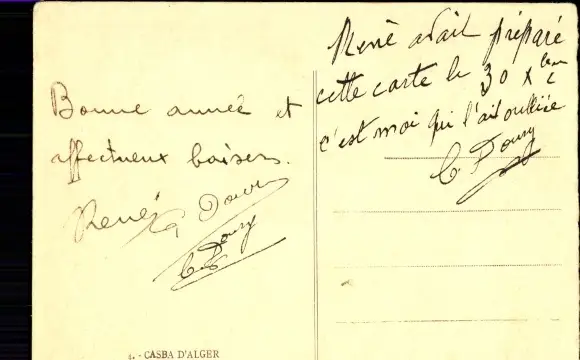 Bonne année et
affectueux baisers.
René
René avait préparé
cette carte le 30 Xbre
c'est moi qui l'ait oubliée
4. - CASBA D'ALGER